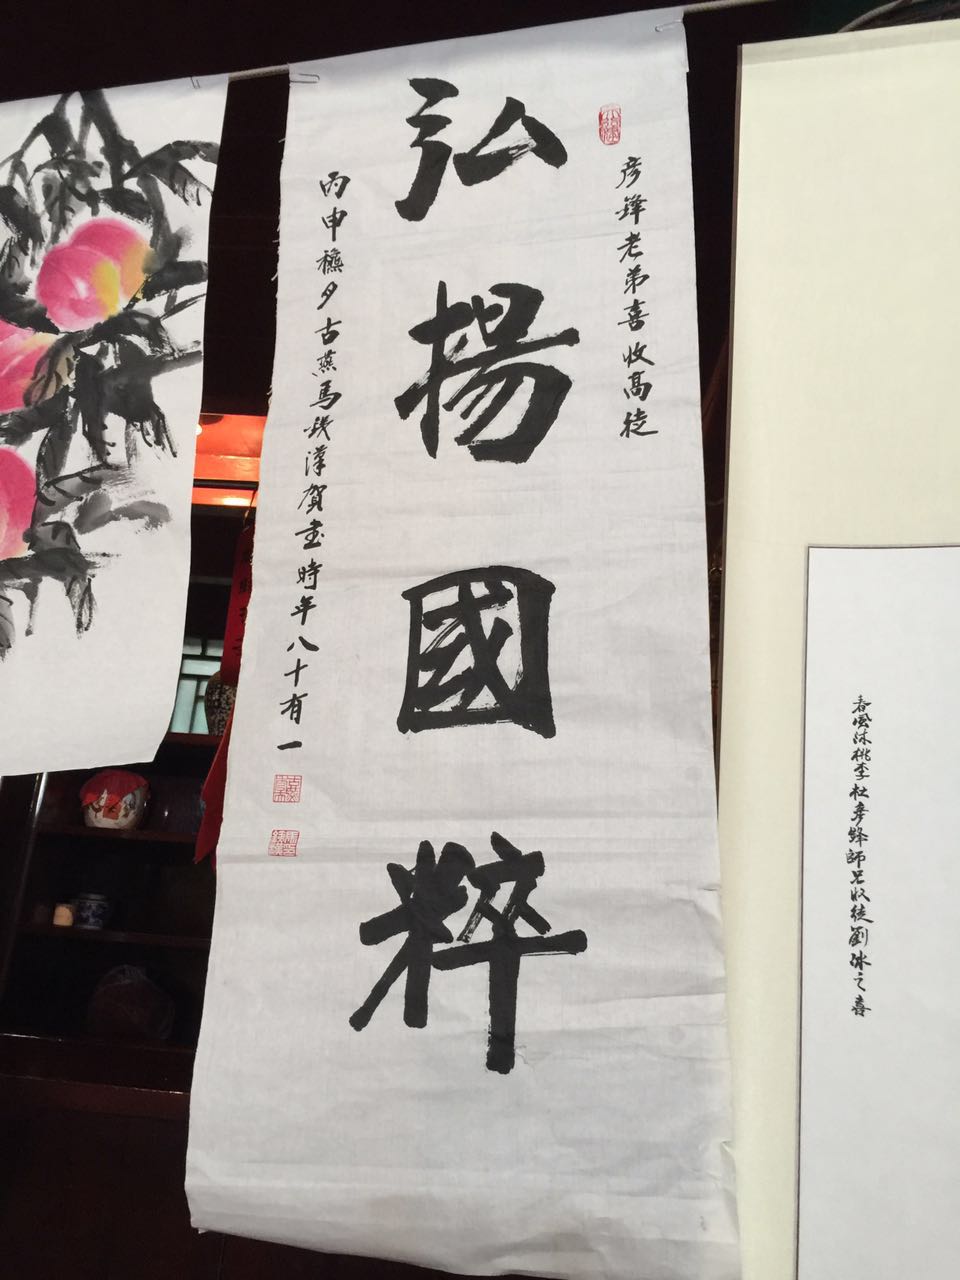 彦鋒老弟喜收高徒
弘揚國粹
丙申穐夕古燕馬鉄漢賀書時年八十有一
春風沐桃李杜彦鋒師兄收徒劉冰之喜